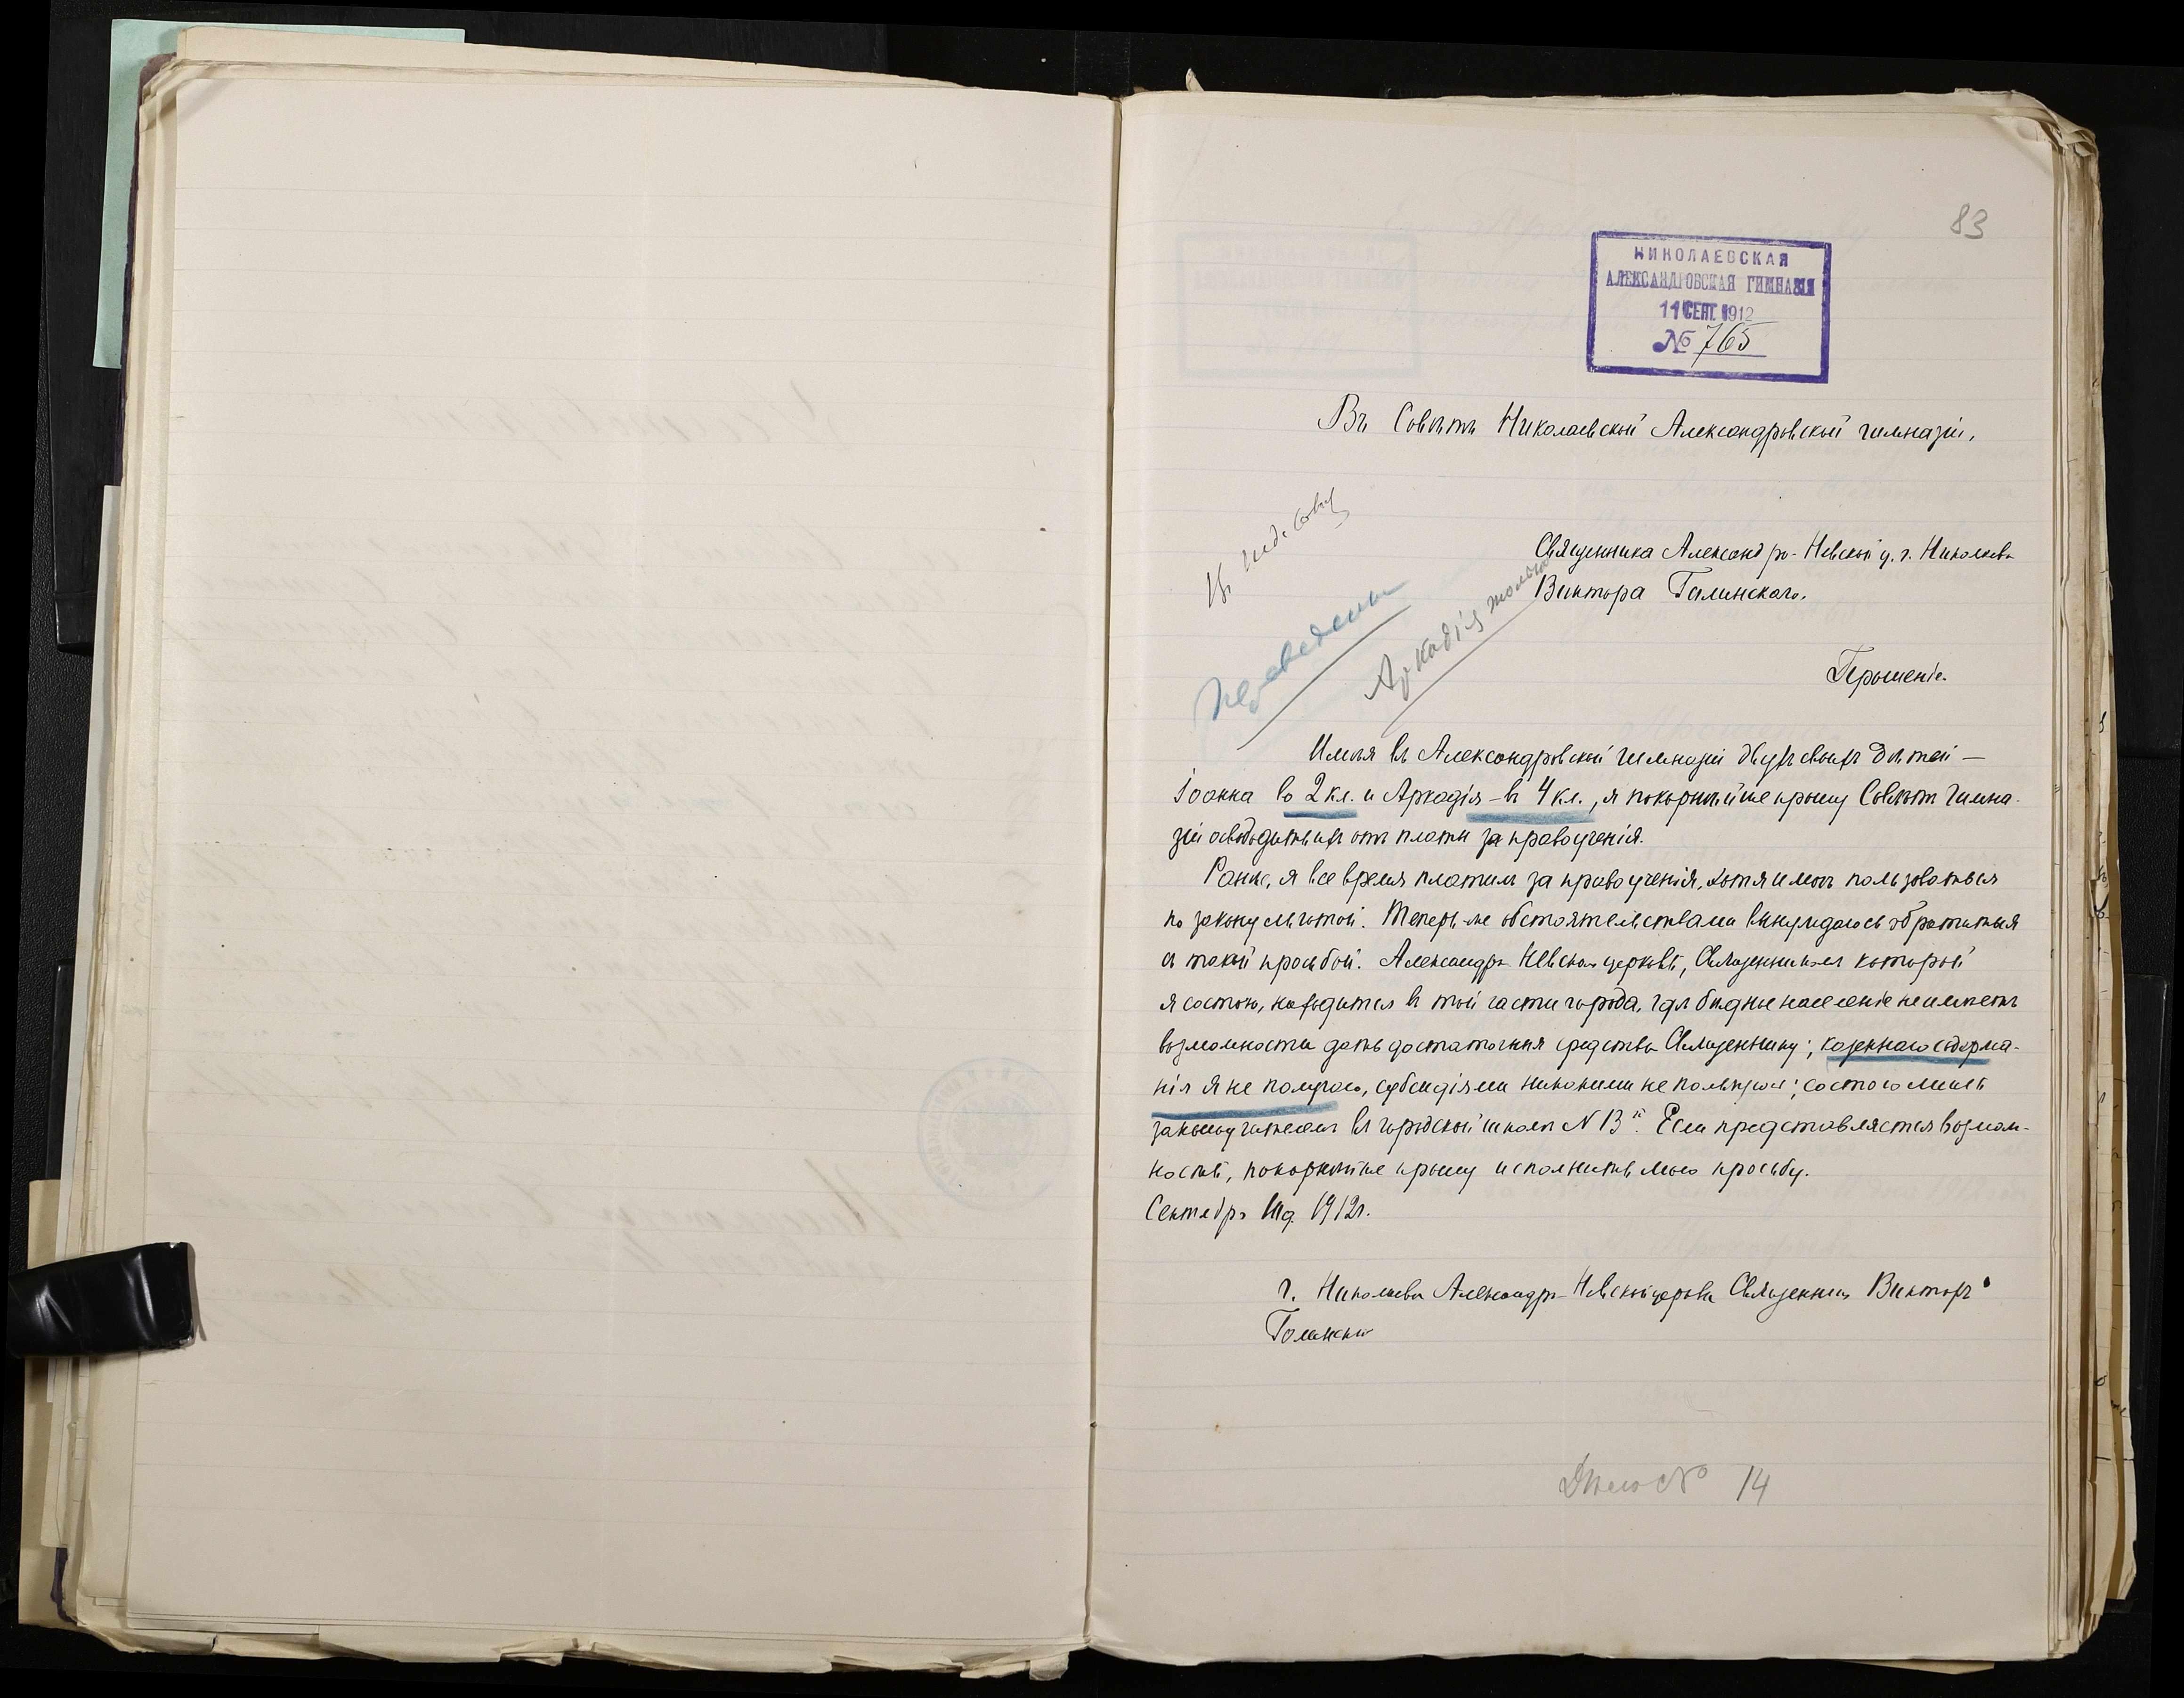 83
НИКОЛАЕВСКАЯ
АЛЕКСАНДРОВСКАЯ ГИМНАЗІЯ
11 СЕНТ. 1912
№ 765
Въ Совѣтъ Николаевской Александровской гимназіи,
Къ Совѣту
Священника Александро-Невской ц. г. Николаева
Виктора Галинскаго.
Переведены
Аркадія только
Прошеніе.
Имѣя въ Александровской гимназіи двухъ своихъ дѣтей —
Іоанна во 2 кл. и Аркадія – въ 4 кл., я покорнѣйше прошу Совѣтъ Гимна-
зіи освободить ихъ отъ платы за правоученія.
Ранѣе, я все время платилъ за правоученія, хотя и могъ пользоваться
по закону льготой. Теперь-же обстоятельствами вынуждаюсь обратиться
съ такой просьбой. Александро-Невская церковь, Священникомъ которой
я состою, находится въ той части города, гдѣ бѣдные населеніе не имѣетъ
возможности дать достаточныя средства Священнику; казеннаго содержа-
нія я не получаю, субсидіями никакими не пользуюсь; состою лишь
законоучителемъ въ городской школѣ N 13й. Если представляется возмож-
ность, покорнѣйше прошу исполнить мою просьбу.
Сентябрь 11 д. 1912 г.
г. Николаева Александро-Невской церкви Священник Викторъ
Галинскій
Дѣло № 14